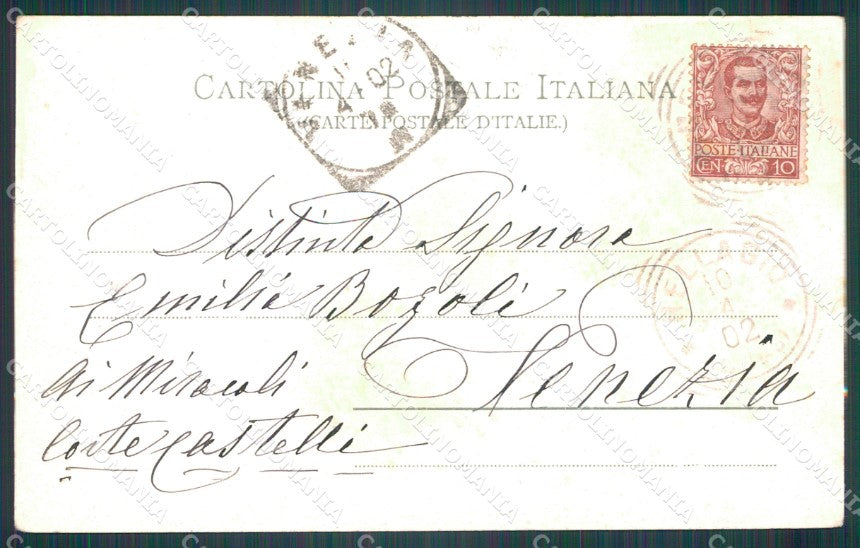 CARTOLINA POSTALE ITALIANA
(CARTE POSTALE D'ITALIE.)
VENEZIA
11
4 02
POSTE·ITALIANE
CEN 10
10
4
02
Distinta Signora
Emilia Bogoli
Venezia
ai Miracoli
Corte Castelli
CARTOLINOMANIA